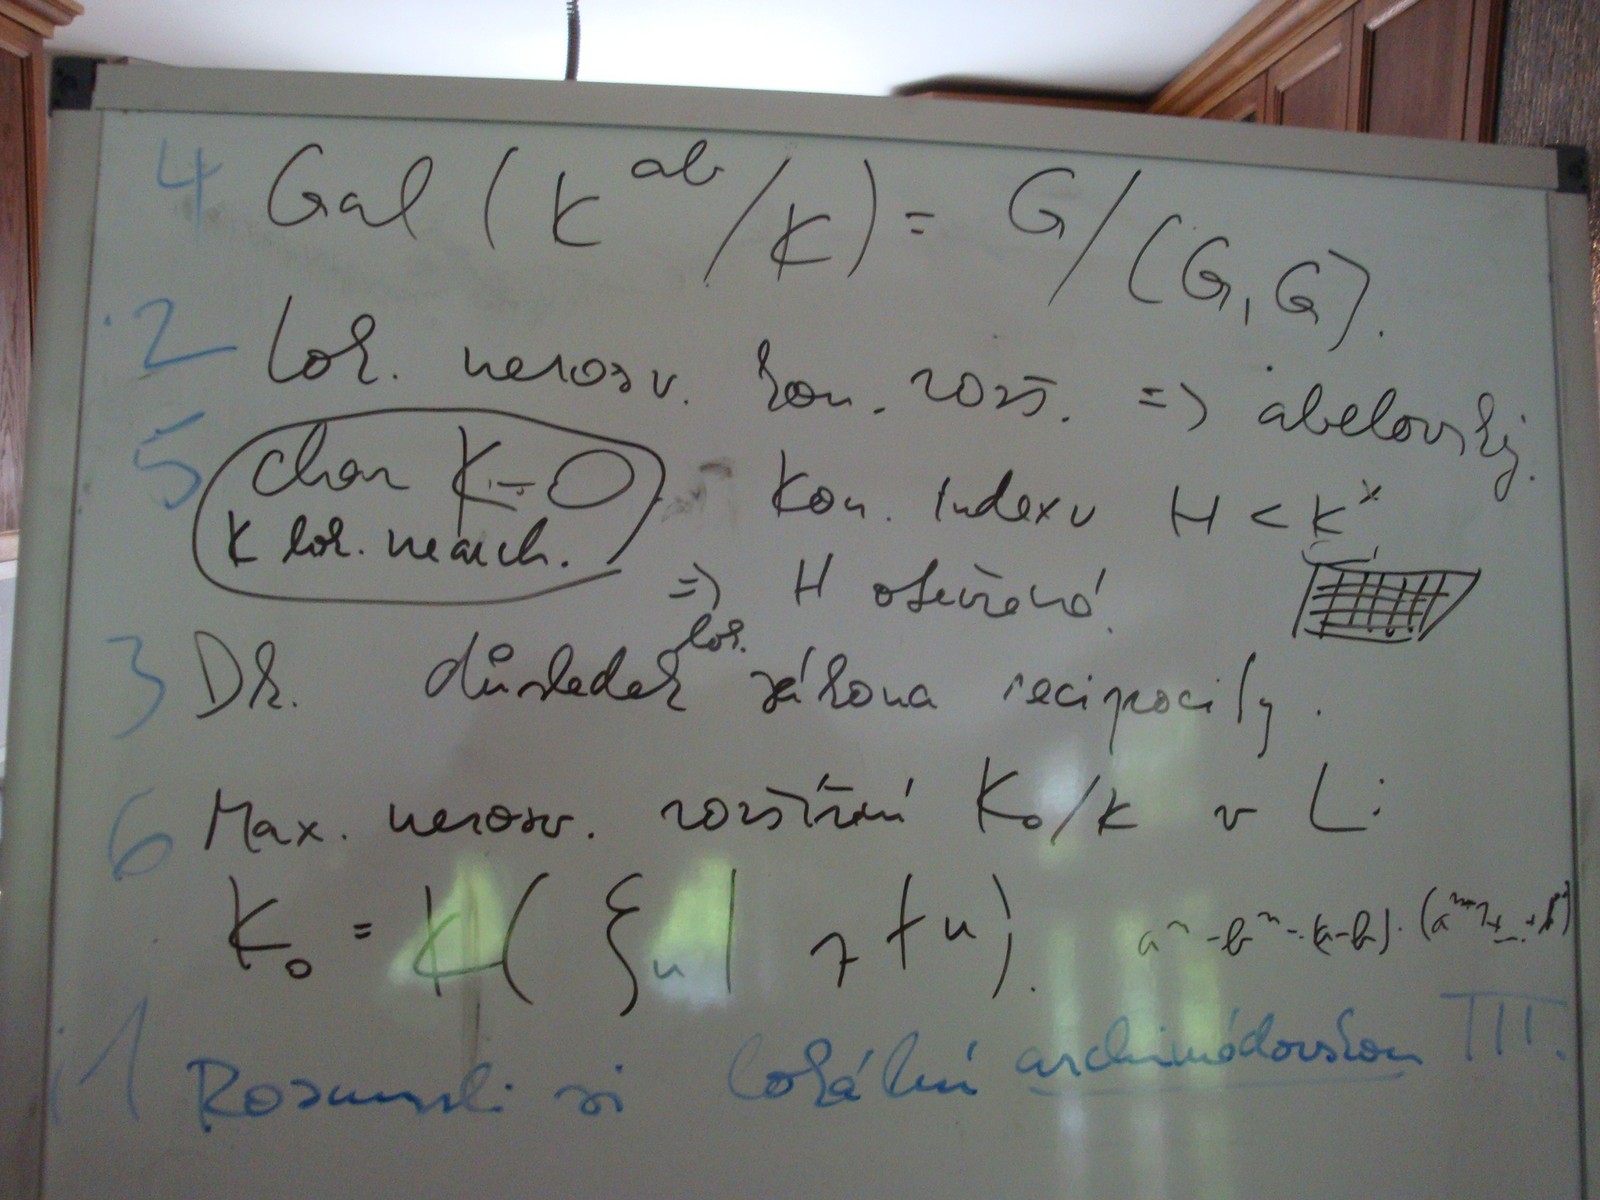 4 Gal (K^ab/K) = G/(G,G).
2 lok. nerozv. kon. rozš. => abelovský.
5 char K=0 kon. indexu H < K^×
K lok. nearch. => H otevřená.
3 Dk. důsledek lok. zákona reciprocity.
6 Max. nerozv. rozšíření K₀/K v L:
K₀ = K(ζ_n | p ∤ n). a^n-b^n=(a-b).(a^n-1+...+b
1 Rozmysli si lokální archimédovskou TTT.